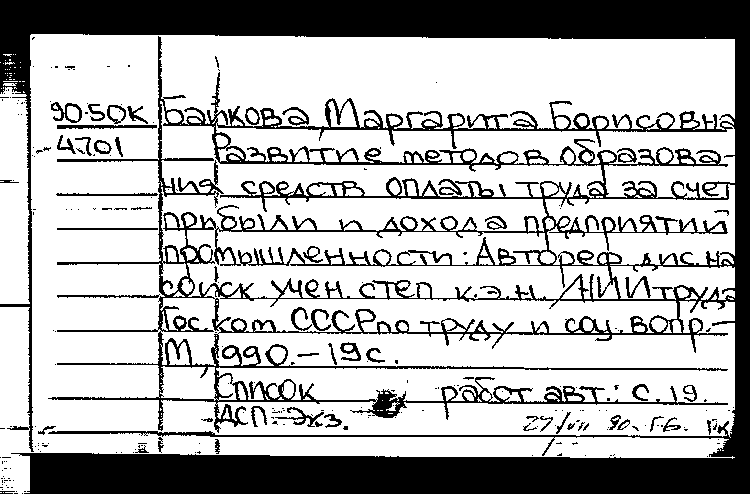 90-50К Байкова, Маргарита Борисовна
4701 Развитие методов образова-
ния средств оплаты труда за счет
прибыли и дохода предприятий
промышленности: Автореф. дис. на
соиск. учен. степ. к.э.н. /НИИ труда
Гос. ком. СССР по труду и соц. вопр.-
М., 1990.-19с.
Список работ авт.: с.19.
ДСП. Экз.
27/VII 90. Г.Б. ПК